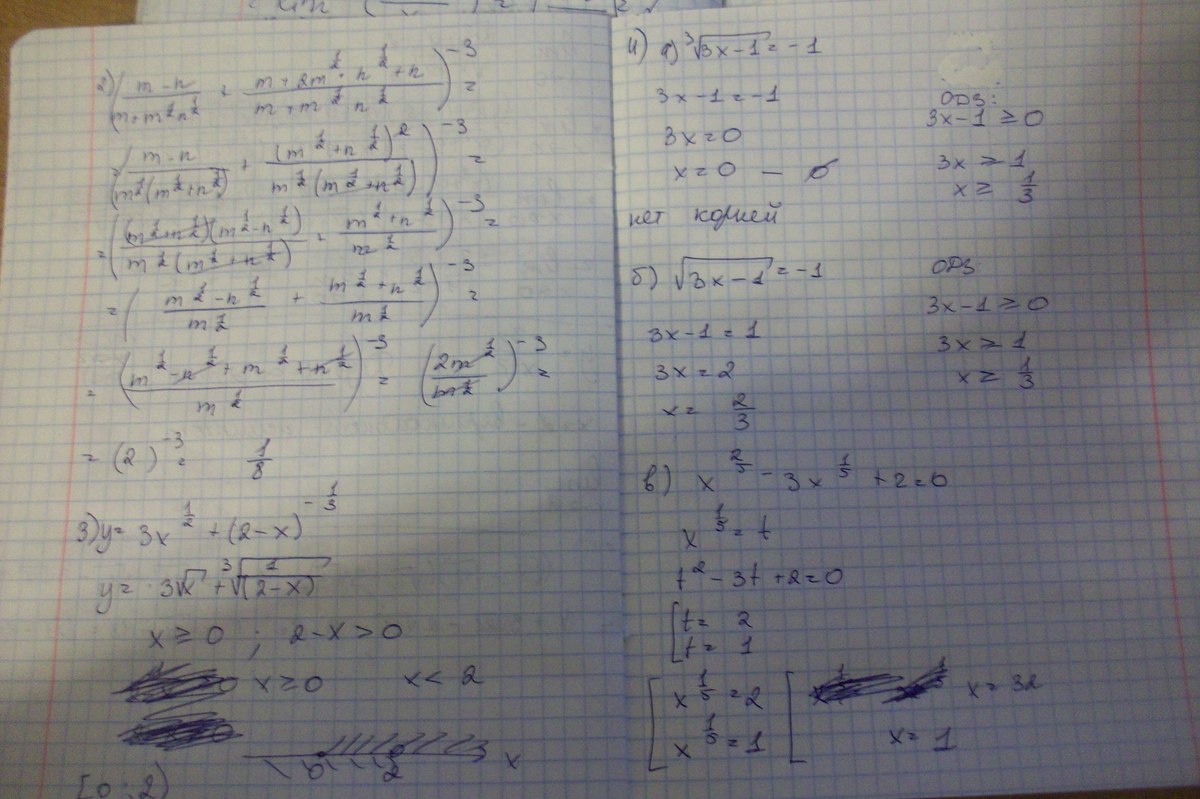 2) ((m-n)/(m+m^½n^½) + (m+2m^½·n^½+n)/(m+m^½·n^½))^-3 =
= ((m-n)/(m^½(m^½+n^½)) + (m^½+n^½)^2/(m^½(m^½+n^½)))^-3 =
= ((m^½+n^½)(m^½-n^½)/(m^½(m^½+n^½)) + (m^½+n^½)/m^½)^-3 =
= ((m^½-n^½)/m^½ + (m^½+n^½)/m^½)^-3 =
= ((m^½-n^½+m^½+n^½)/m^½)^-3 = (2m^½/m^½)^-3 =
= (2)^-3 = 1/8
3) y= 3x^(1/2) + (2-x)^(-1/3)
y= 3√x + ³√(1/(2-x))
x ≥ 0 ; 2-x > 0
x ≥ 0 x < 2
0 2 x
[0 ; 2)
4) а) ³√(3x-1) = -1
3x-1 = -1
3x = 0
x = 0 — ∅
нет корней
ОДЗ:
3x-1 ≥ 0
3x ≥ 1
x ≥ 1/3
б) √(3x-1) = -1
3x-1 = 1
3x = 2
x = 2/3
ОДЗ
3x-1 ≥ 0
3x ≥ 1
x ≥ 1/3
в) x^(2/5) - 3x^(1/5) + 2 = 0
x^(1/5) = t
t² - 3t + 2 = 0
[t = 2
t = 1
[x^(1/5) = 2 [x = 32
x^(1/5) = 1 x = 1